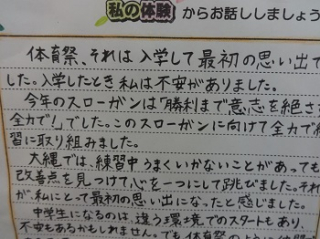 私の体験 からお話ししましょう
体育祭、それは入学して最初の思い出で
した。入学したとき私は不安がありました。
今年のスローガンは「勝利まで意志を絶さ
全力で!」でした。このスローガンに向けて全力で練
習に取り組みました。
大縄では、練習中うまくいかないことがあっても
改善点を見つけて、心を一つにして跳びました。それ
が、私にとって最初の思い出になったと感じました。
中学生になるのは、違う環境でのスタートもあり、
不安もあるかもしれません。でも体育祭のように